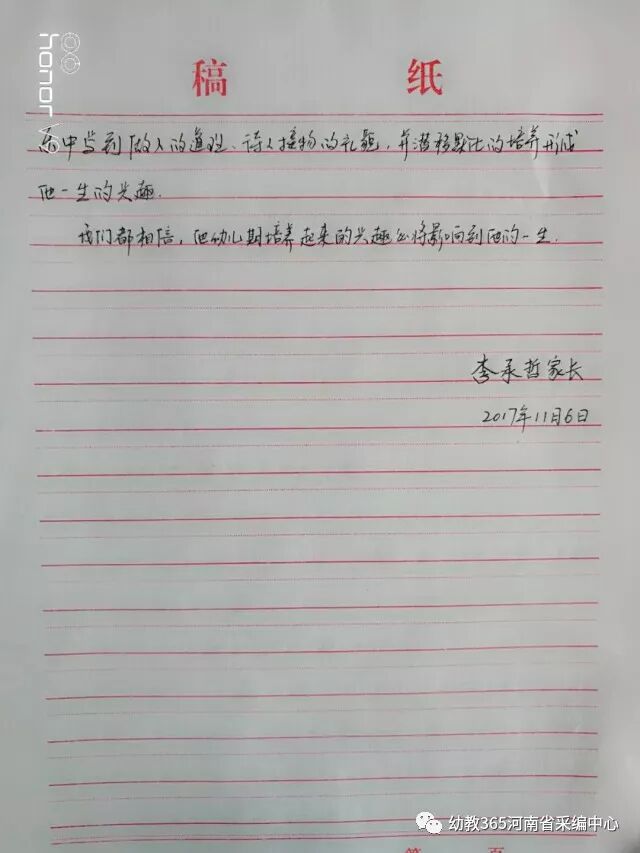 honor V9
稿 纸
而中学到做人的道理、待人接物的礼貌，并潜移默化的培养形成
他一生的兴趣.
我们都相信，他幼儿期培养起来的兴趣必将影响到他的一生.
李承哲家长
2017年11月6日
幼教365河南省采编中心
第 页